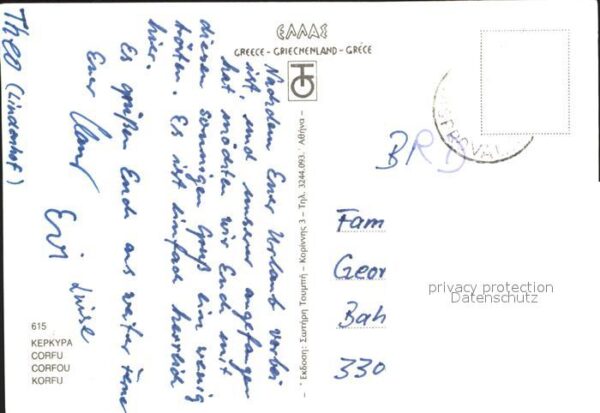 ΕΛΛΑΣ
GREECE - GRIECHENLAND - GRÈCE
Nachdem Euer Urlaub vorbei
ist, und unserer angefangen
hat möchten wir Euch mit
diesem sonnigen Gruß ein wenig
trösten. Es ist einfach herrlich
hier.
Es grüßen Euch aus weiter Ferne
Euer
Evi Luise
Theo (Lindenhof)
BRD
Fam
Geor
Bah
330
privacy protection
Datenschutz
Έκδοση: Σωτήρη Τουμπή – Κορίννης 3 – Τηλ. 3244.093. Αθήνα –
615
ΚΕΡΚΥΡΑ
CORFU
CORFOU
KORFU